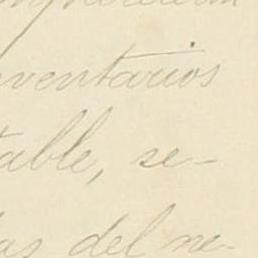 nventarios
table, se-
as del ne-